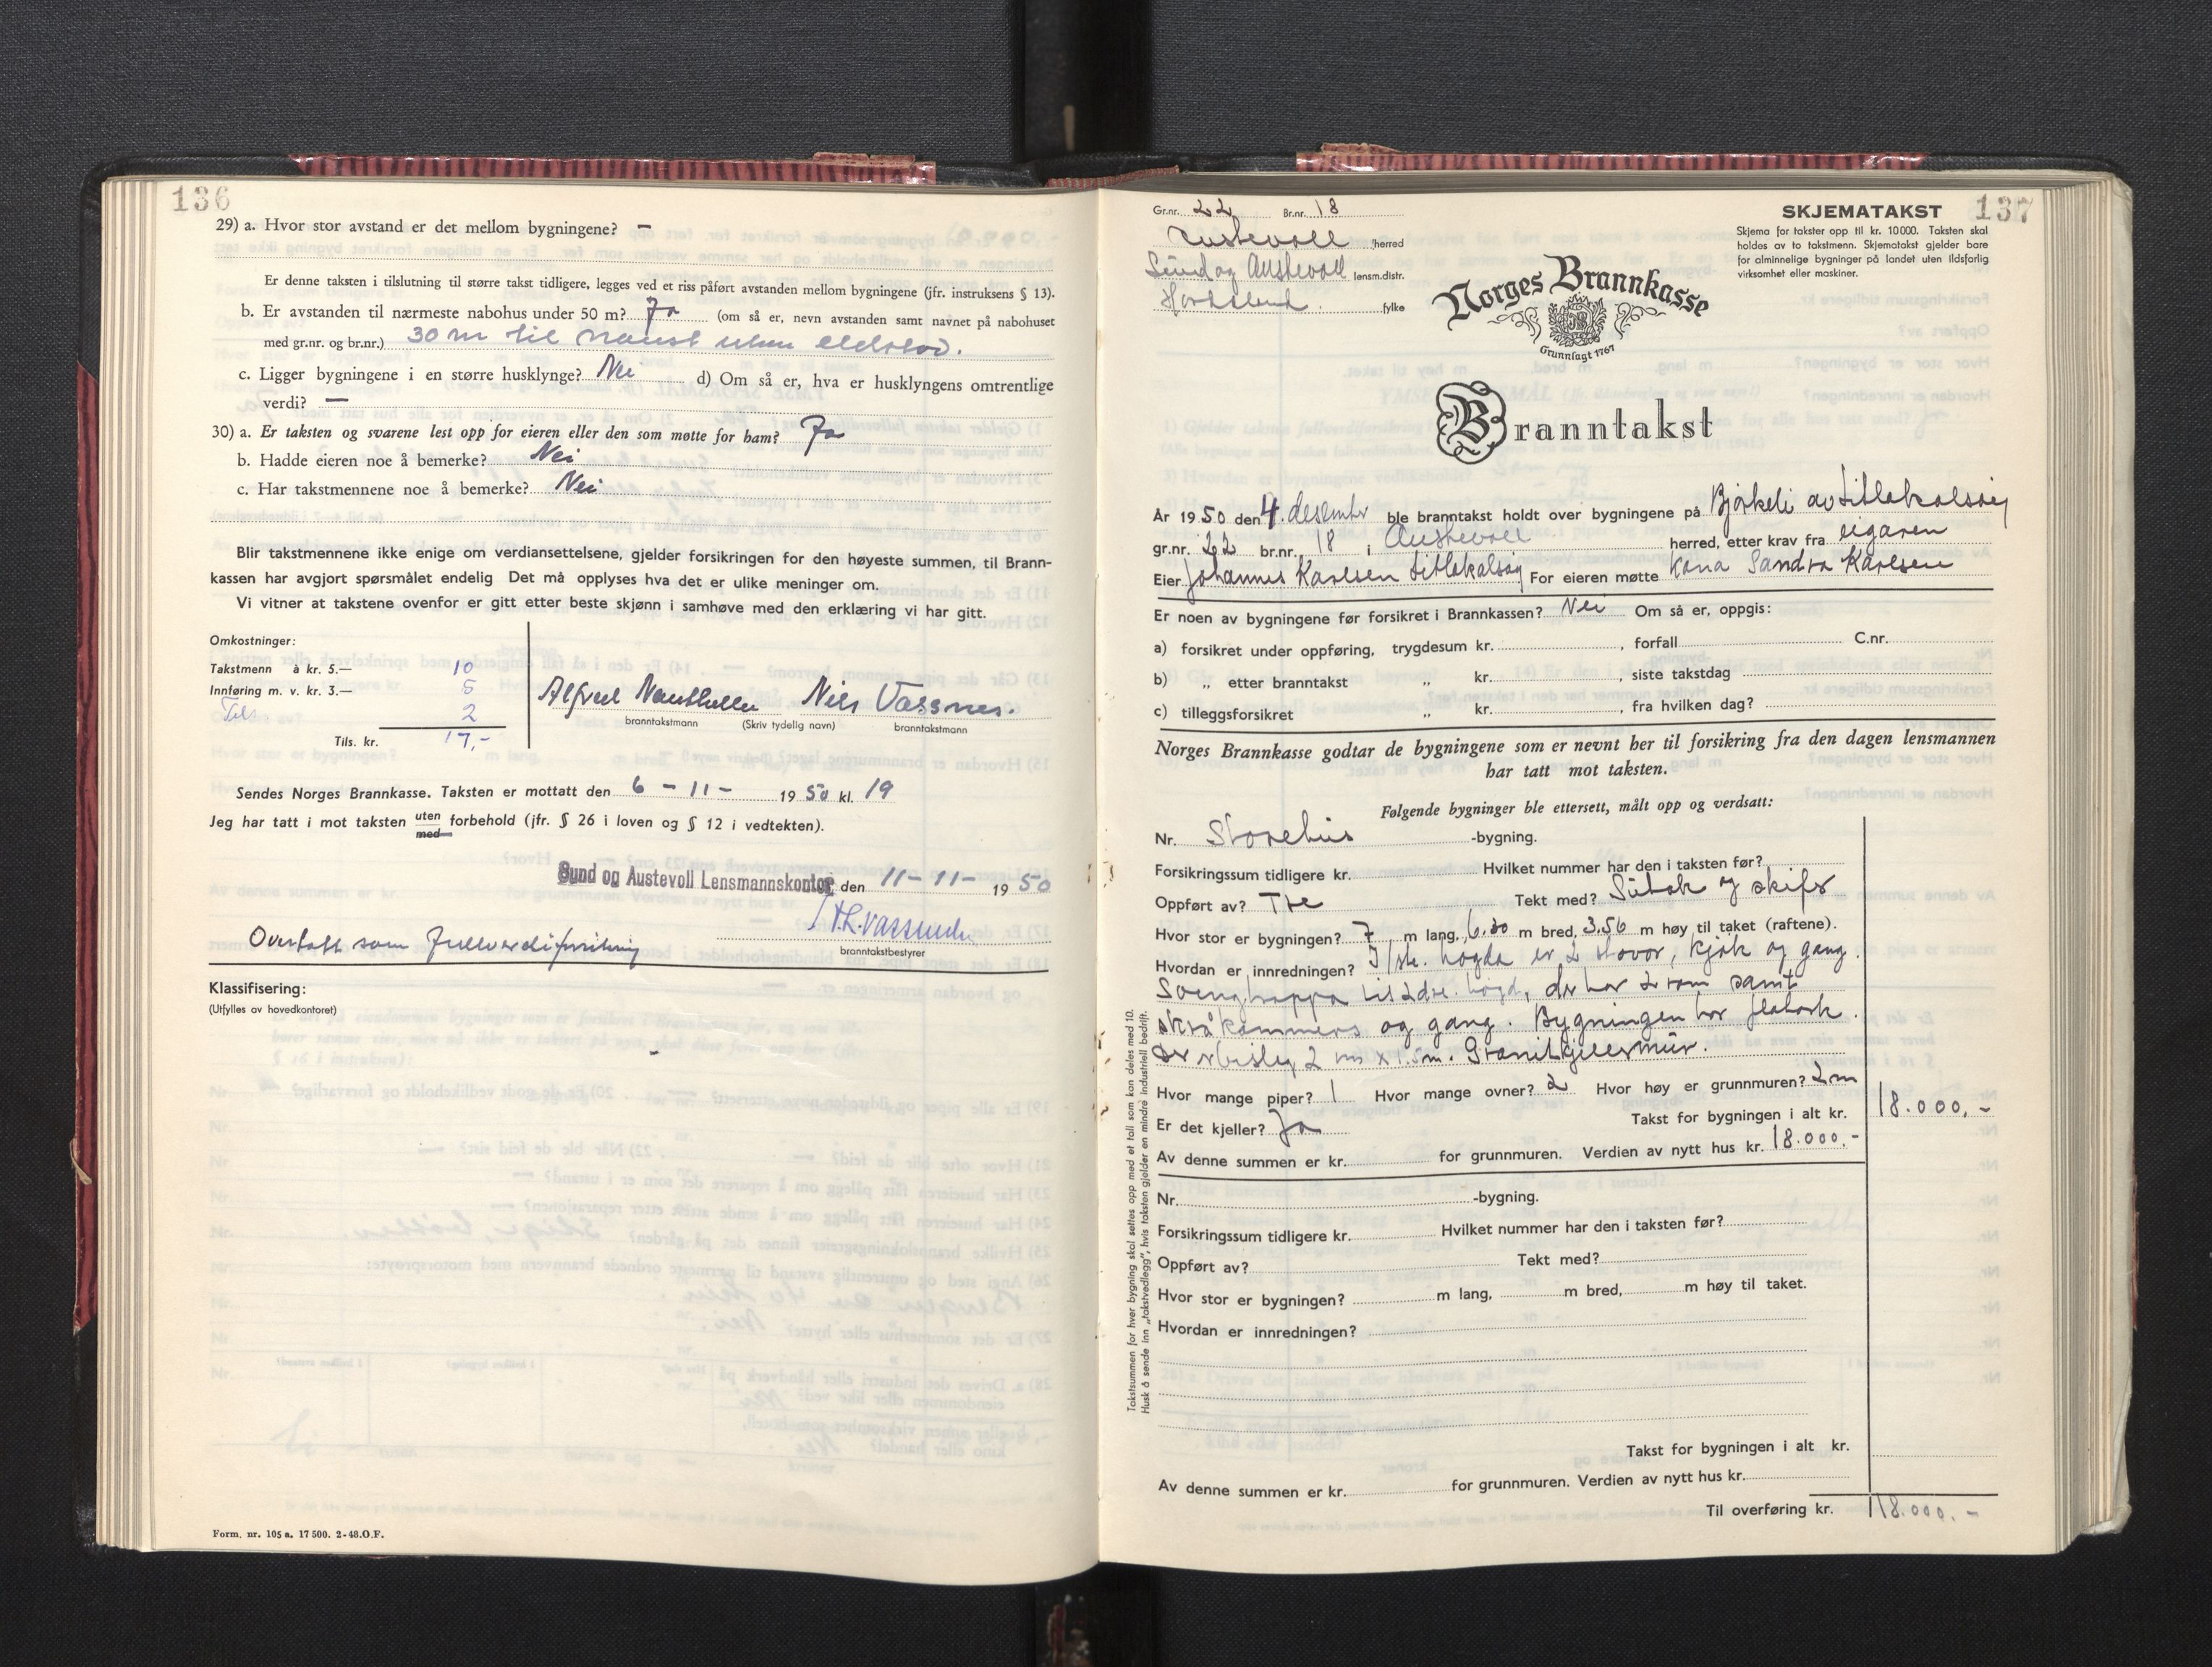 136
29) a. Hvor stor avstand er det mellom bygningene? —
Er denne taksten i tilslutning til større takst tidligere, legges ved et riss påført avstanden mellom bygningene (jfr. instruksens § 13).
b. Er avstanden til nærmeste nabohus under 50 m? Ja (om så er, nevn avstanden samt navnet på nabohuset
med gr.nr. og br.nr.) 30 m til naust uten eldstad.
c. Ligger bygningene i en større husklynge? Nei d) Om så er, hva er husklyngens omtrentlige
verdi? —
30) a. Er taksten og svarene lest opp for eieren eller den som møtte for ham? Ja
b. Hadde eieren noe å bemerke? Nei
c. Har takstmennene noe å bemerke? Nei
Blir takstmennene ikke enige om verdiansettelsene, gjelder forsikringen for den høyeste summen, til Brann-
kassen har avgjort spørsmålet endelig Det må opplyses hva det er ulike meninger om.
Vi vitner at takstene ovenfor er gitt etter beste skjønn i samhøve med den erklæring vi har gitt.
Omkostninger:
Takstmenn à kr. 5.— 10
Innføring m. v. kr. 3.— 5
2
Tils. kr. 17,-
Alfred Nils Vassnes.
branntakstmann (Skriv tydelig navn) branntakstmann
Sendes Norges Brannkasse. Taksten er mottatt den 6 - 11 - 1950 kl. 19
Jeg har tatt i mot taksten uten med forbehold (jfr. § 26 i loven og § 12 i vedtekten).
Sund og Austevoll Lensmannskontor den 11-11- 1950
branntakstbestyrer
Overtatt som Fullverdiforsikring
Klassifisering:
(Utfylles av hovedkontoret)
Form. nr. 105 a. 17 500. 2-48. O.F.
Gr.nr. 22 Br.nr. 18
Austevoll herred
Sund og Austevoll lensm.distr.
Hordaland. fylke
SKJEMATAKST 137
Skjema for takster opp til kr. 10000. Taksten skal
holdes av to takstmenn. Skjematakst gjelder bare
for alminnelige bygninger på landet uten ildsfarlig
virksomhet eller maskiner.
Norges Brannkasse
Grunnlagt 1767
Branntakst
År 1950 den 4. desember ble branntakst holdt over bygningene på Bjørkeli av Litlekalsøy
gr.nr. 22 br.nr. 18 i Austevoll herred, etter krav fra eigaren
Eier Johannes Karlsen Litlekalsøy For eieren møtte kona Sandra Karlsen
Er noen av bygningene før forsikret i Brannkassen? Nei Om så er, oppgis:
a) forsikret under oppføring, trygdesum kr. , forfall C.nr.
b) „ etter branntakst „ kr. , siste takstdag
c) tilleggsforsikret „ kr. , fra hvilken dag?
Norges Brannkasse godtar de bygningene som er nevnt her til forsikring fra den dagen lensmannen
har tatt mot taksten.
Følgende bygninger ble ettersett, målt opp og verdsatt:
Nr. Storehus -bygning.
Forsikringssum tidligere kr. Hvilket nummer har den i taksten før?
Oppført av? Tre Tekt med? Sutak og skifr
Hvor stor er bygningen? 7 m lang, 6.30 m bred, 3.56 m høy til taket (raftene).
Hvordan er innredningen? I 1ste. høgda er 2 stovor, kjøk og gang.
Svengtrappa til 2dre. høgd, der har 2 rom samt
skråkammers og gang. Bygningen har flatark.
2 m x 1.5 m. Granitkjellermur.
Hvor mange piper? 1 Hvor mange ovner? 2 Hvor høy er grunnmuren? 2 m
Takst for bygningen i alt kr. 18.000.-
Er det kjeller? Ja
Av denne summen er kr. for grunnmuren. Verdien av nytt hus kr. 18.000.-
Nr. -bygning.
Forsikringssum tidligere kr. Hvilket nummer har den i taksten før?
Oppført av? Tekt med?
Hvor stor er bygningen? m lang, m bred, m høy til taket.
Hvordan er innredningen?
Takst for bygningen i alt kr.
Av denne summen er kr. for grunnmuren. Verdien av nytt hus kr.
Til overføring kr. 18.000.-
Takstsummen for hver bygning skal settes opp med et tall som kan deles med 10.
Husk å sende inn „takstvedlegg", hvis taksten gjelder en mindre industriell bedrift.